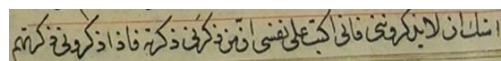 انسك ان لا يذكرونني فاني اكتب على نفسي ان من ذكرني ذكرته فاذا ذكروني ذكرتهم